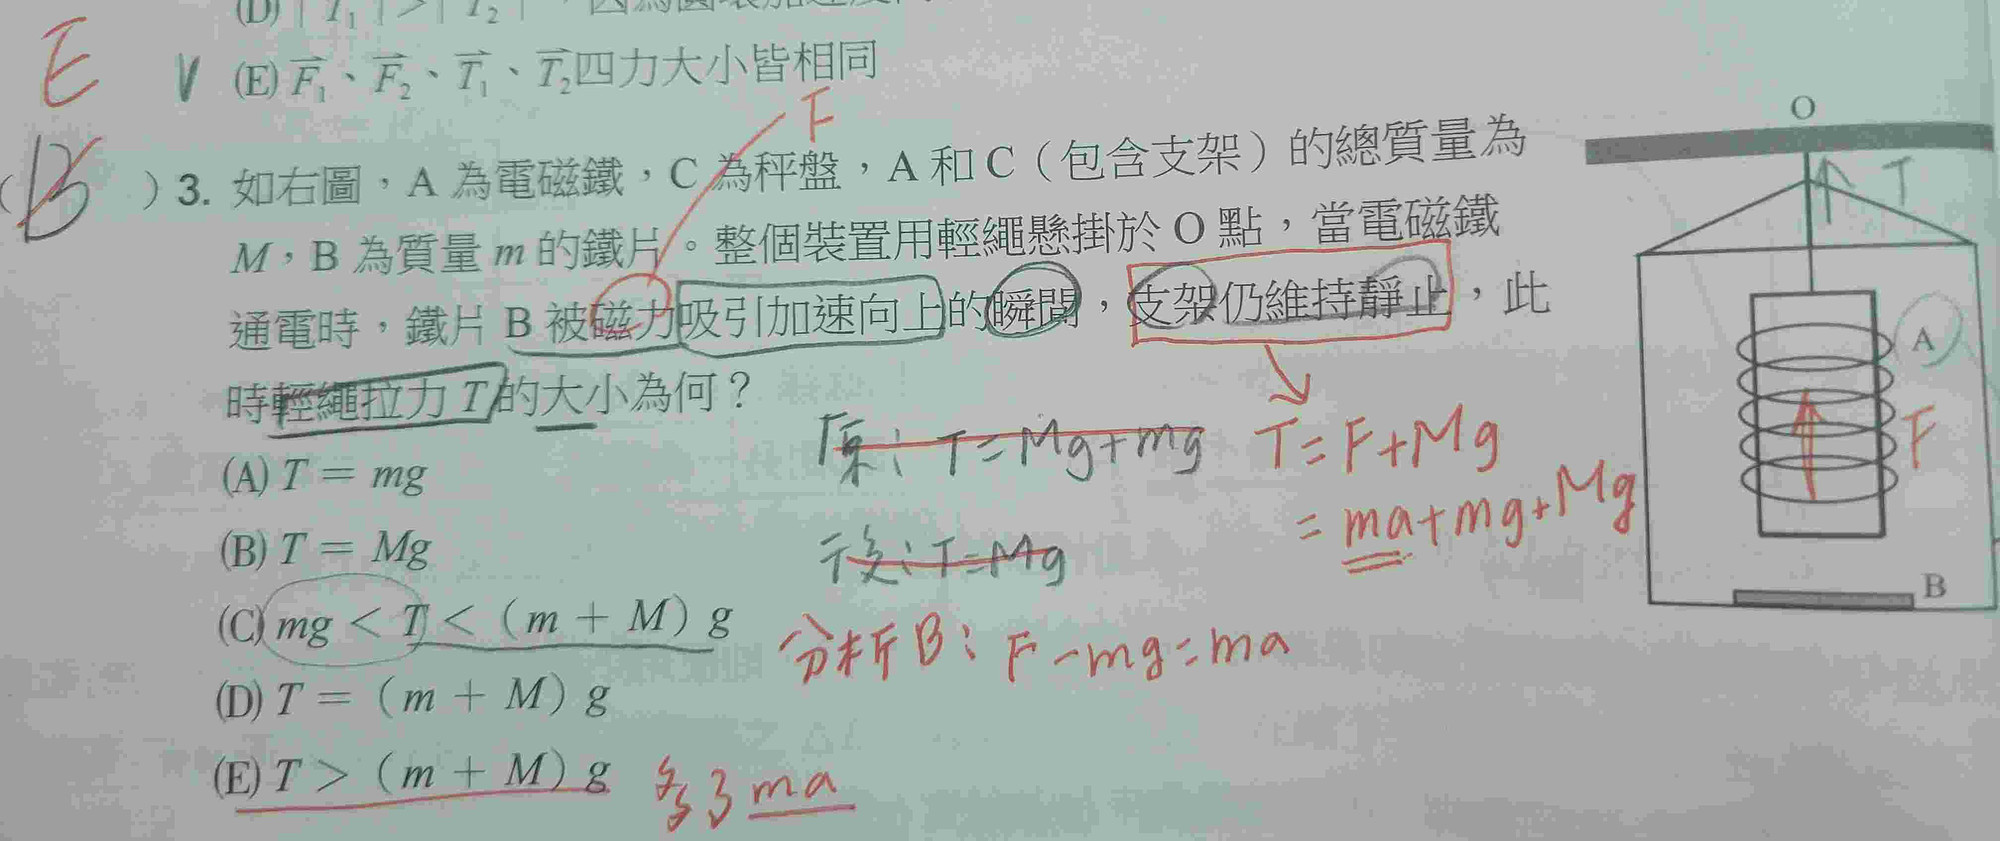 (E) F₁、F₂、T₁、T₂四力大小皆相同
E
V
F
(B) 3. 如右圖,A 為電磁鐵,C 為秤盤,A 和 C(包含支架)的總質量為
M,B 為質量 m 的鐵片。整個裝置用輕繩懸掛於 O 點,當電磁鐵
通電時,鐵片 B 被磁力吸引加速向上的瞬間,支架仍維持靜止,此
時輕繩拉力 T 的大小為何?
(A) T = mg
(B) T = Mg
(C) mg < T < (m + M) g
(D) T = (m + M) g
(E) T > (m + M) g
多了 ma
原:T=Mg+mg
後:T=Mg
T=F+Mg
=ma+mg+Mg
分析B:F-mg=ma
O
T
A
F
B